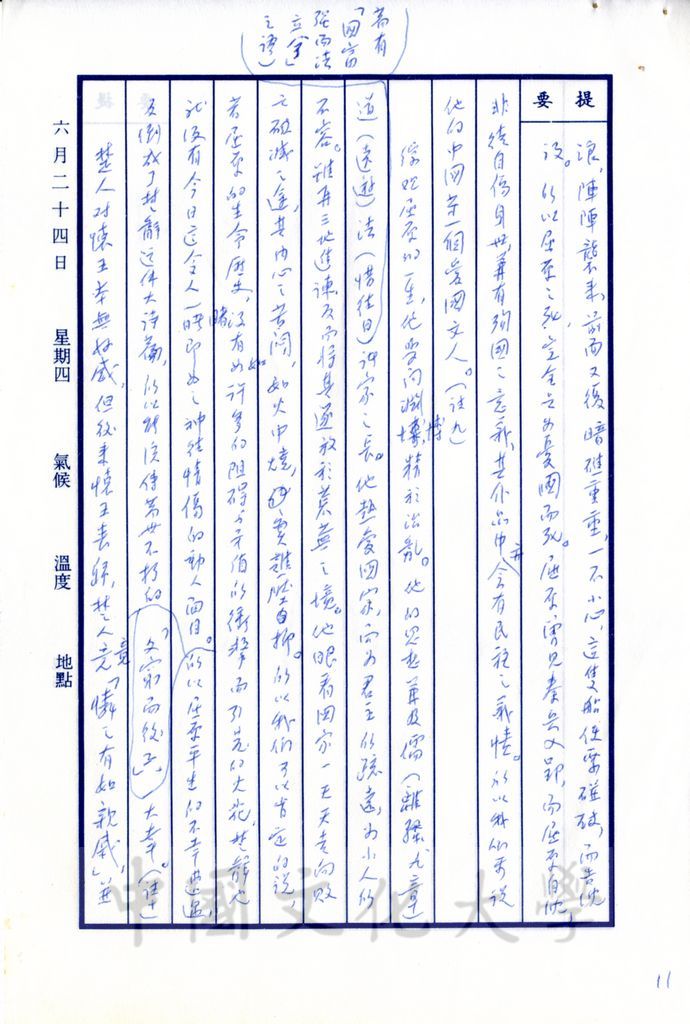 若有
「國富
強而法
立」
之譚
提要
浪，陣陣襲來，前面又復暗礁重重，一不小心，這隻船便要碰破，而告沈
沒。所以屈原之死，完全是為憂國而死。屈原曾見秦兵入郢，而屈原自沈，
非徒自傷身世，兼有殉國之意義，其作品中並含有民族之義憤。所以我們要說
他的中國第一個愛國文人。（註九）
綜觀屈原的一生，他學問淵博，精於治亂。他的思想兼及儒（離騷九章）
道（遠遊）法（惜往日）諸家之長。他熱愛國家，而為君王所疏遠，為小人所
不容。雖再三地進諫反而將其逐放於荒蕪之境。他眼看國家一天天走向敗
亡破滅之途，其內心之苦悶，如火中燒，實難壓自抑。所以我們可以肯定的說
若屈原的生命歷史，沒有如許多的阻礙與矛盾的衝擊而引起的火花，楚辭
就沒有今日這令人一睹即為之神往情傷的動人面目。所以屈原平生的不幸遭遇，
反倒成了楚辭這偉大詩篇，所以
「文窮而後工」大幸。（註
楚人對懷王本無好感，但後來懷王喪歸，楚人竟「憐之有如親戚」，並
六月二十四日 星期四 氣候 溫度 地點
中國文化大學
11